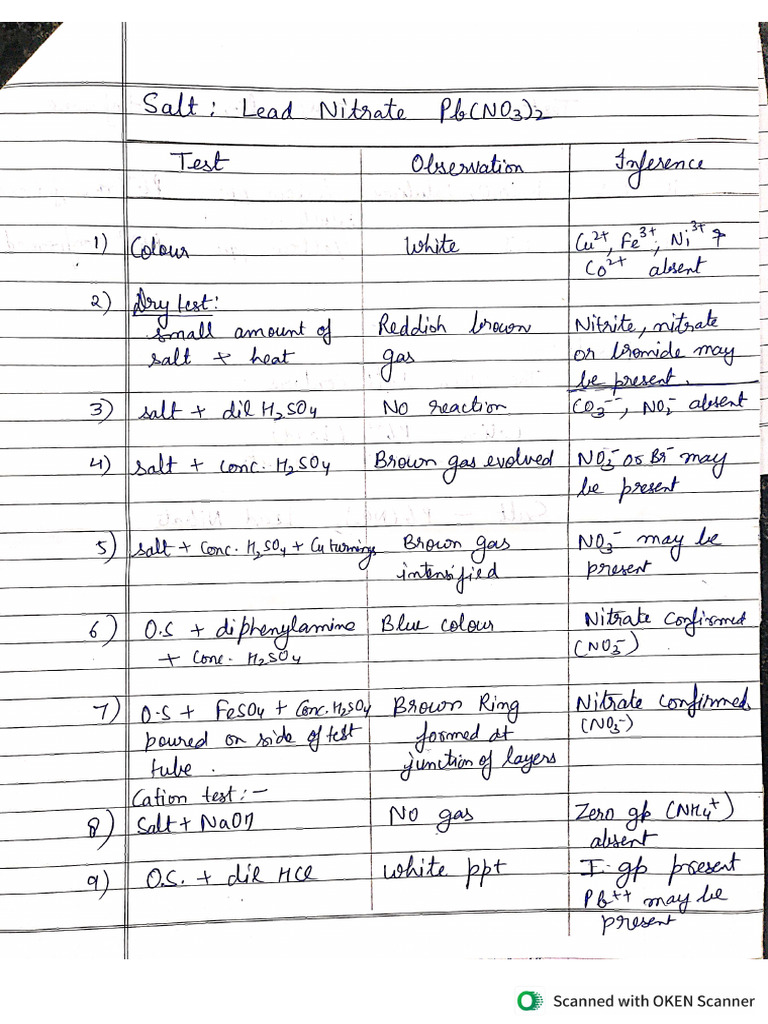 Salt: Lead Nitrate Pb(NO3)2
Test Observation Inference
1) Colour White Cu2+, Fe3+, Ni3+ &
Co2+ absent
2) Dry test:
small amount of Reddish brown Nitrite, nitrate
salt + heat gas or bromide may
be present.
3) salt + dil H2SO4 No reaction CO3--, NO2- absent
4) salt + conc. H2SO4 Brown gas evolved NO3- or Br- may
be present
5) salt + conc. H2SO4 + Cu turnings Brown gas NO3- may be
intensified present
6) O.S + diphenylamine Blue colour Nitrate confirmed
+ conc. H2SO4 (NO3-)
7) O.S + FeSO4 + Conc. H2SO4 Brown Ring Nitrate confirmed
poured on side of test formed at (NO3-)
tube. junction of layers
Cation test:-
8) Salt + NaOH No gas Zero gp (NH4+)
absent
9) O.S. + dil HCl White ppt I gp present
Pb++ may be
present
Scanned with OKEN Scanner